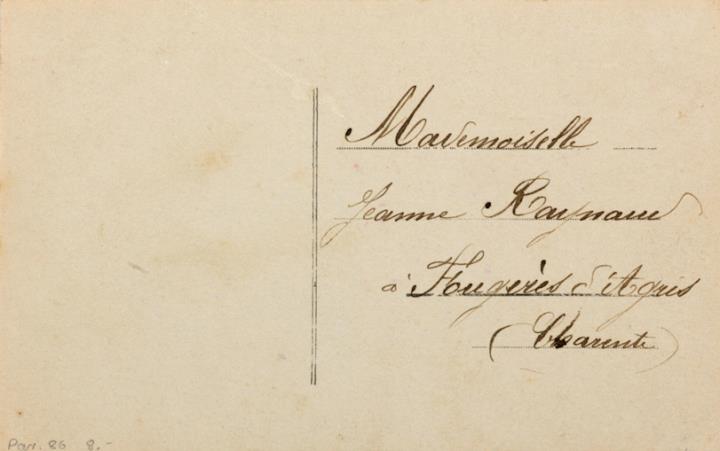 Mademoiselle
Jeanne Raynaud
à Fługères d'Agris
(Charente)
Par. 86 8.-